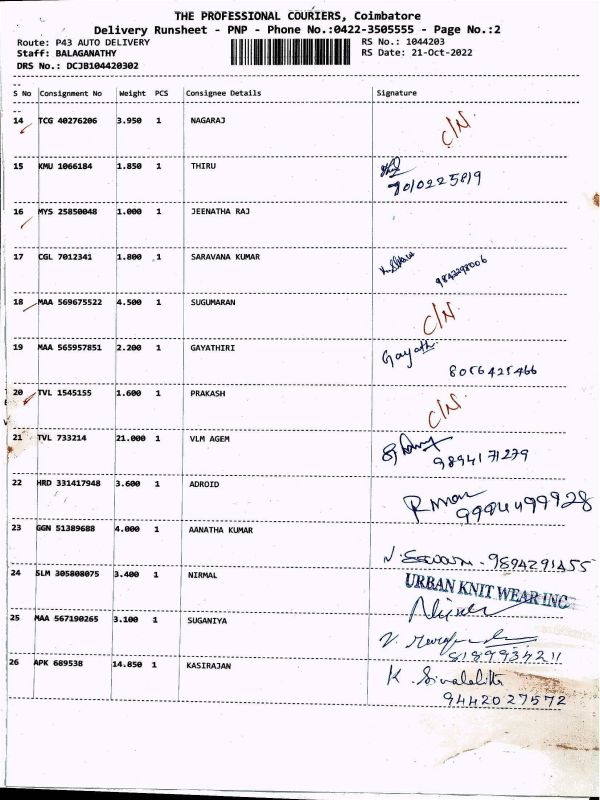 THE PROFESSIONAL COURIERS, Coimbatore
Delivery Runsheet - PNP - Phone No.:0422-3505555 - Page No.:2
Route: P43 AUTO DELIVERY RS No.: 1044203
Staff: BALAGANATHY RS Date: 21-Oct-2022
DRS No.: DCJB104420302
S No Consignment No Weight PCS Consignee Details Signature
14 TCG 40276206 3.950 1 NAGARAJ C/N.
15 KMU 1066184 1.850 1 THIRU
7010225819
16 MYS 25850048 1.000 1 JEENATHA RAJ
17 CGL 7012341 1.800 1 SARAVANA KUMAR
9842298006
18 MAA 569675522 4.500 1 SUGUMARAN C/N.
19 MAA 565957851 2.200 1 GAYATHIRI Gayath.
8056425466
20 TVL 1545155 1.600 1 PRAKASH C/N.
21 TVL 733214 21.000 1 VLM AGEM
9894171279
22 HRD 331417948 3.600 1 ADROID
23 GGN 51389688 4.000 1 AANATHA KUMAR
9894291455
24 SLM 305808075 3.400 1 NIRMAL URBAN KNIT WEAR INC
25 MAA 567190265 3.100 1 SUGANIYA
8189934211
26 APK 689538 14.850 1 KASIRAJAN K. Sivalalith
9442027572